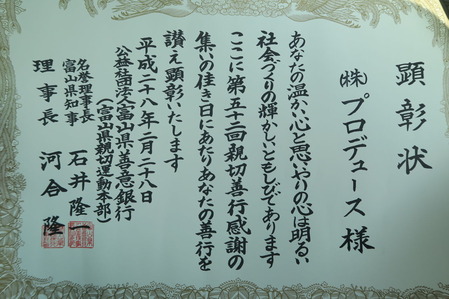 顕彰状
㈱プロデュース様
あなたの温かい心と思いやりの心は明るい
社会づくりの輝かしいともしびであります
ここに第五十二回親切善行感謝の
集いの佳き日にあたりあなたの善行を
讃え顕彰いたします
平成二十八年二月二十八日
公益社団法人富山県善意銀行
(富山県親切運動本部)
名誉理事長
富山県知事 石井隆一
理事長 河合隆